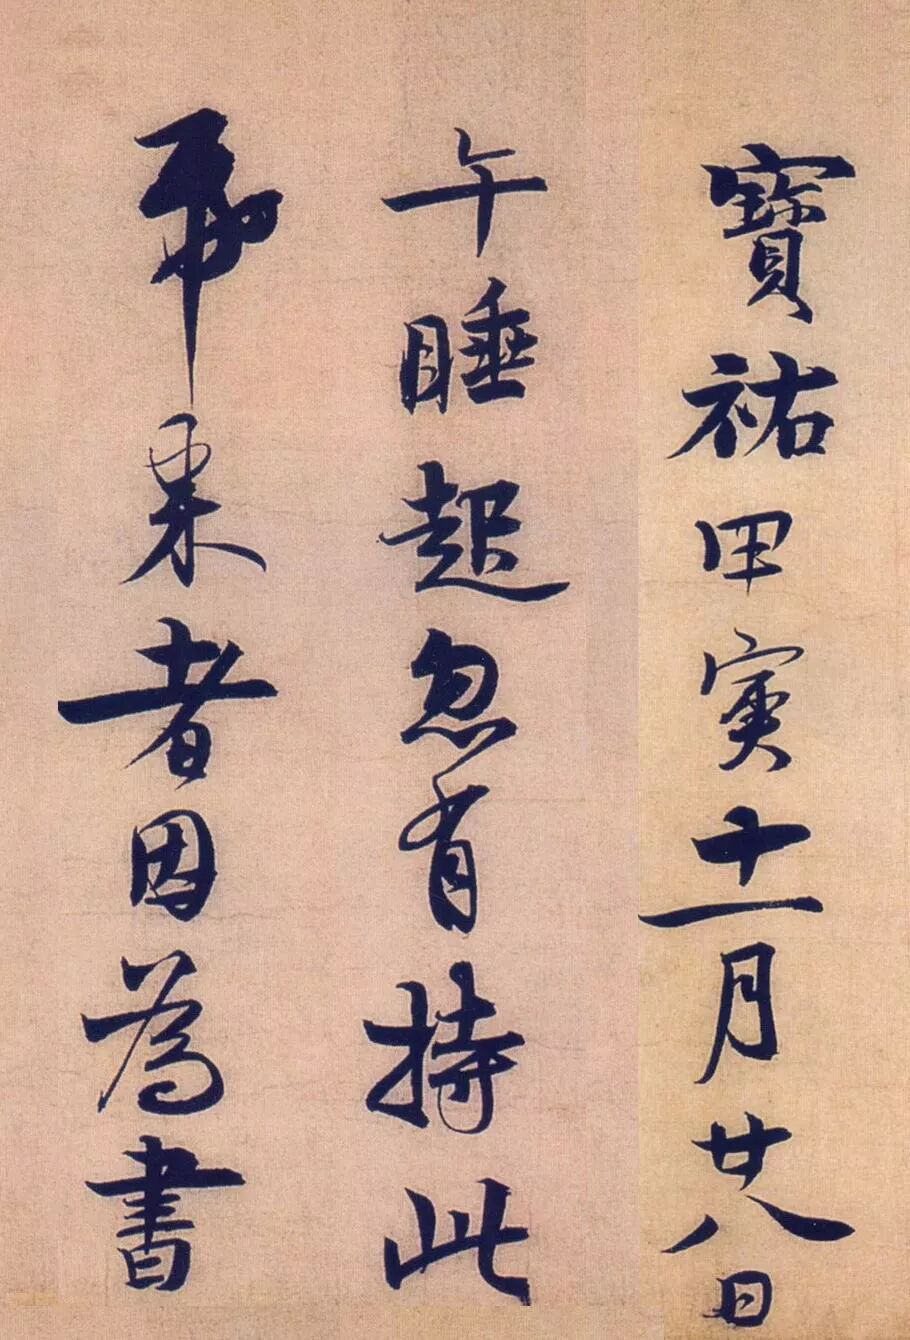 寶祐甲寅十一月廿八日
午睡起忽有持此
帋来者因為書